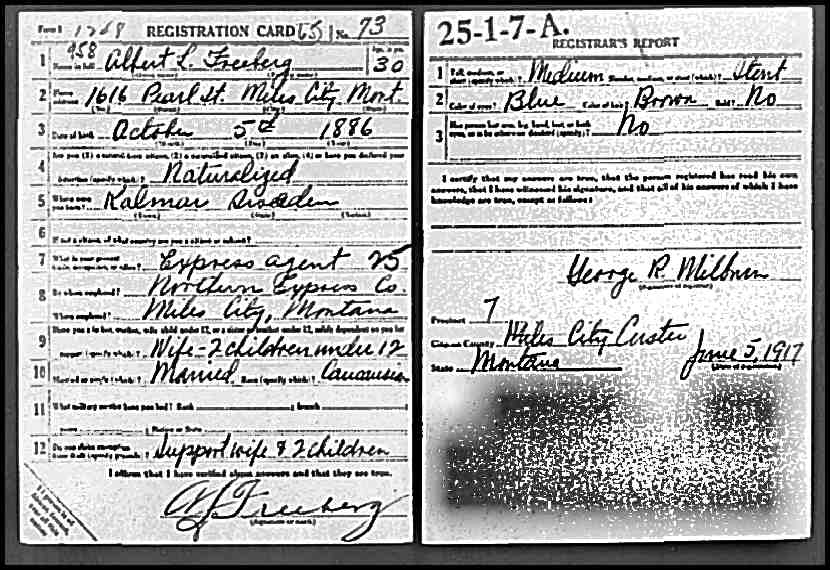 Form 1 1768 REGISTRATION CARD 65 No. 73
958
1 Name in full Albert L. Freeberg Age, in yrs. 30
2 Home address 1616 Pearl St. Miles City, Mont.
3 Date of birth October 5th 1886
4 Are you (1) a natural born citizen, (2) a naturalized citizen, (3) an alien, (4) or have you declared your
intention (specify which)? Naturalized
5 Where were you born? Kalmar Sweden
(Town) (State) (Nation)
6 If not a citizen, of what country are you a citizen or subject?
7 What is your present trade, occupation, or office? Express agent 25
8 By whom employed? Northern Express Co.
Where employed? Miles City, Montana
9 Have you a father, mother, wife, child under 12, or a sister or brother under 12, solely dependent on you for
support (specify which)? Wife - 2 children under 12
10 Married or single (which)? Married Race (specify which)? Caucasian
11 What military service have you had? Rank ; branch
years ; Nation or State
12 Do you claim exemption from draft (specify grounds)? Support wife & 2 children
I affirm that I have verified above answers and that they are true.
A L Freeberg
(Signature or mark)
25-1-7-A.
REGISTRAR'S REPORT
1 Tall, medium, or short (specify which)? Medium Slender, medium, or stout (which)? Stout
2 Color of eyes? Blue Color of hair? Brown Bald? No
3 Has person lost arm, leg, hand, foot, or both eyes, or is he otherwise disabled (specify)? No
I certify that my answers are true, that the person registered has read his own
answers, that I have witnessed his signature, and that all of his answers of which I have
knowledge are true, except as follows:
George R. Milburn
(Signature of registrar)
Precinct 7
City or County Miles City Custer
State Montana June 5, 1917
(Date of registration)